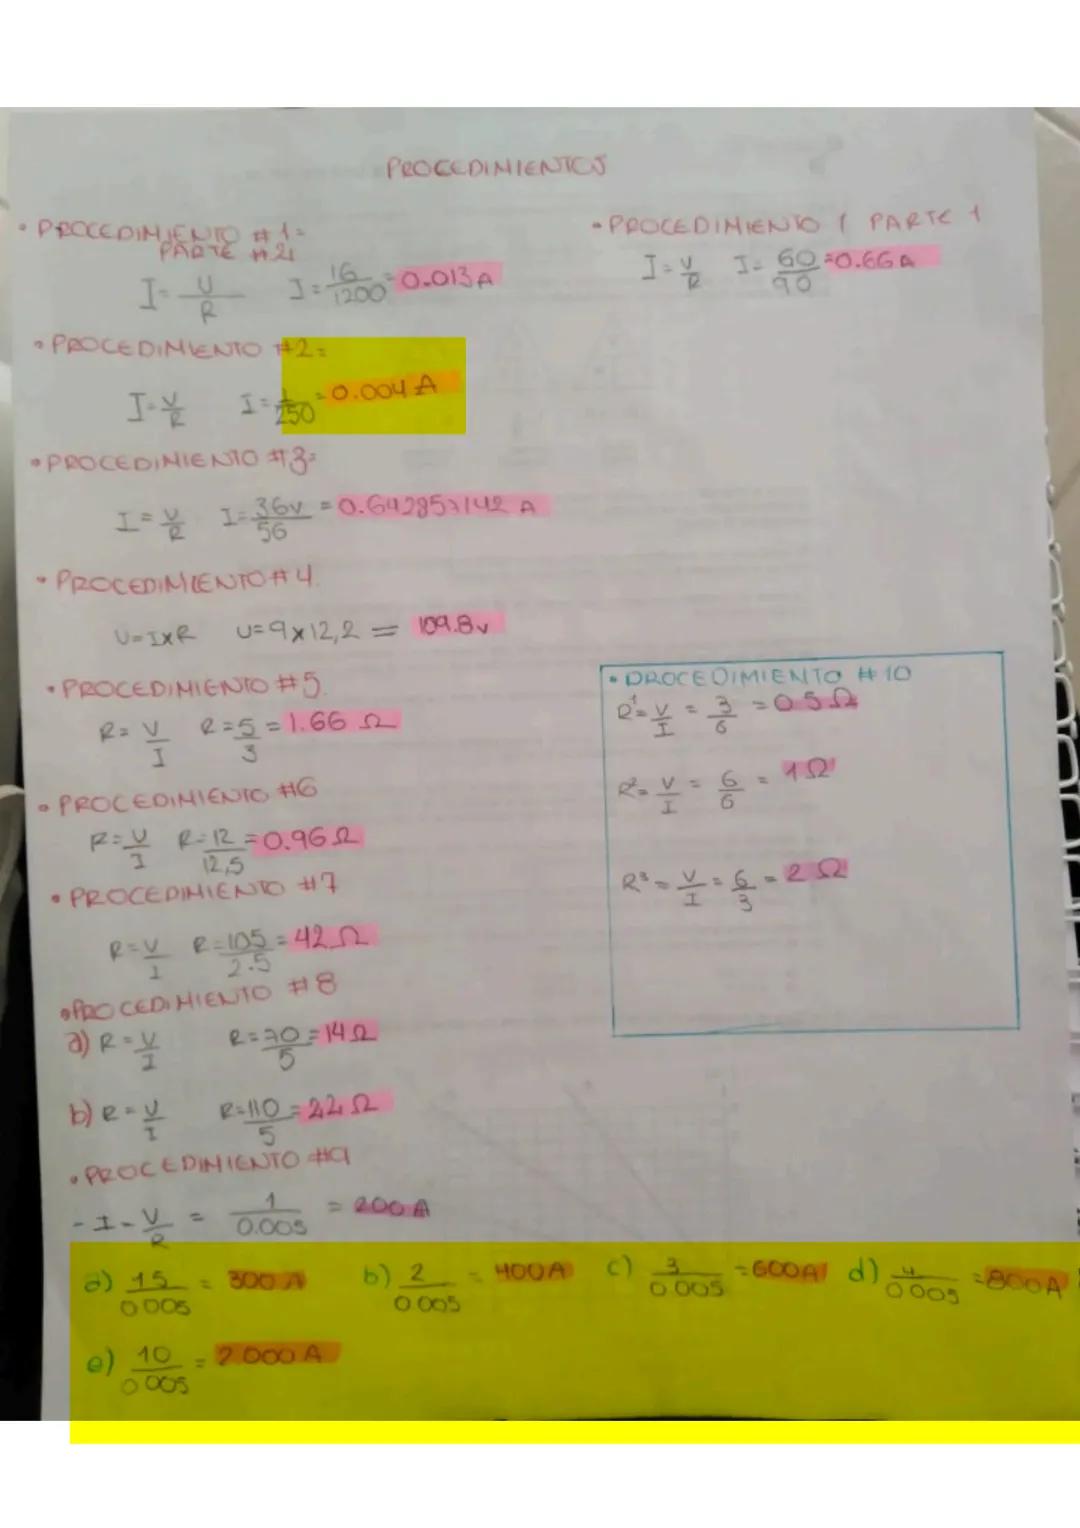 PROCEDIMIENTOS
• PROCEDIMIENTO #1=
PARTE #21
I=U/R I=16/1200=0.013A
• PROCEDIMIENTO 1 PARTE 1
I=V/R I=60/90=0.66A
• PROCEDIMIENTO #2=
I=V/R I=1/250=0.004A
• PROCEDIMIENTO #3=
I=V/R I=36v/56=0.642857142 A
• PROCEDIMIENTO #4.
U=IxR U=9x12,2= 109.8v
• PROCEDIMIENTO #5.
R=V/I R=5/3=1.66 Ω
• PROCEDIMIENTO #6
R=V/I R=12/12,5=0.96Ω
• PROCEDIMIENTO #7
R=V/I R=105/2.5=42Ω
• PROCEDIMIENTO #8
a) R=V/I R=70/5=14Ω
b) R=V/I R=110/5=22Ω
• PROCEDIMIENTO #9
- I-V/R = 1/0.005 = 200A
a) 15/0005 = 300A b) 2/0005 = 400A c) 3/0.005 =600A d) 4/0005 =800A
e) 10/0005 = 2.000A
• PROCEDIMIENTO #10
R¹=V/I = 3/6 = 0.5Ω
R²=V/I = 6/6 = 1Ω
R³=V/I=6/3=2Ω